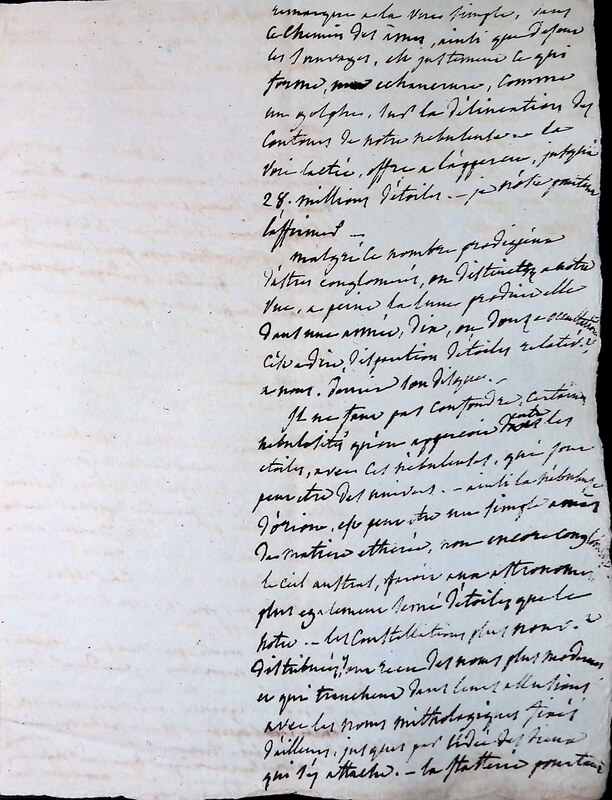 remarque a la vue simple, dans
ce chemin des ames, ainsi que disent
les sauvages, est justement ce qui
forme, une echancrure, comme
un golphe, sur la délineation des
contours de notre nebuleuse. — la
voie lactée, offre a l'appercu, jusqu'à
28. millions d'étoiles. — je n'ose pourtant
l'affirmer —
malgré ce nombre prodigieux
d'astres conglomerés, ou distincts, a notre
vue, a peine la lune produit elle
dans une année, dix, ou douze occultations
c'est a dire, disparition d'étoiles relativt
a nous. derriere son disque. —
Il ne faut pas confondre, certaines
nebulosités qu'on appercoit entre les
etoiles, avec ces nébuleuses, qui sont
peut etre des univers. — ainsi la nébuleuse
d'orion, est peut etre un simple amas
de matiere etherée, non encore
le ciel austral, seroit aux astronomes
plus egalement semé d'étoiles que le
notre. — les constellations plus nouv.
distribuées, ont recu des noms plus modernes
et qui tranchent dans leurs allusions
avec les noms mithologiques
d'ailleurs, jusques par l'idée des
qui s'y attache. — la flatterie pourtant